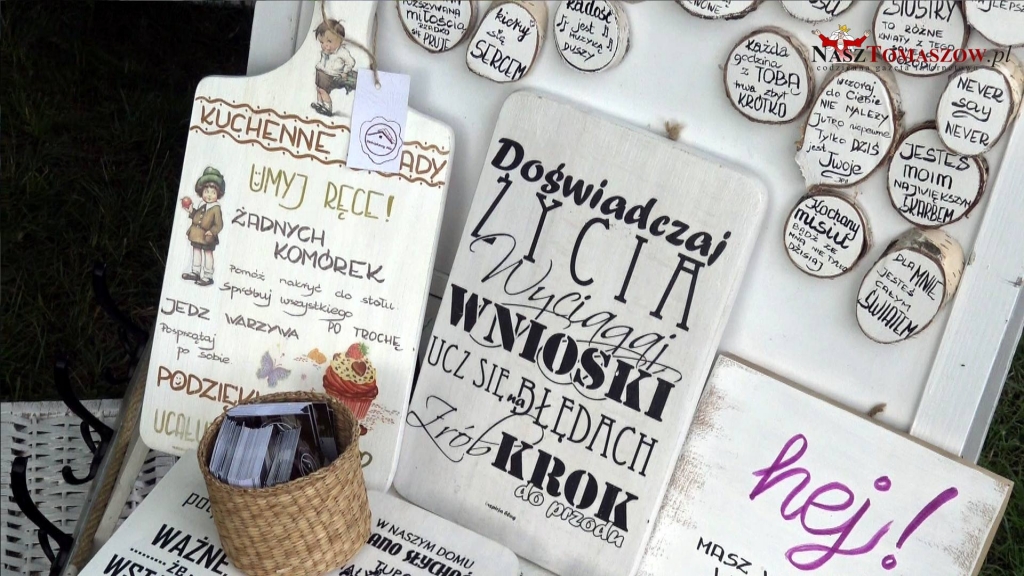 NaszTomaszow.pl
codzienna gazeta
miłością
się PRUJE
kichaj
się
SERCEM
RADOŚĆ
jest
duszy
Każda
godzina
z TOBĄ
trwa zbyt
KRÓTKO
Wzoraj
do Ciebie
NIE NALEŻY
Jutro niepewne
Tylko DZIŚ
jest Twoje
SIOSTRY
TO RÓŻNE
KWIATY Z TEGO
NEVER
say
NEVER
JESTEŚ
MOIM
NAJWIĘKSZYM
SKARBEM
Kochany
misiu
BĄDŹ ŻE
MNĄ NIE TYLKO
DZISIAJ
DLA MNIE
JESTEŚ
CAŁYM
ŚWIATEM
KUCHENNE
ADY
UMYJ RĘCE!
ŻADNYCH
KOMÓREK
Pomóż nakryć do stołu
Spróbuj wszystkiego
PO TROCHĘ
JEDZ WARZYWA
Posprzątaj
po sobie
PODZIĘK
UCAŁU
Doświadczaj
ŻYCIA
Wyciągaj
WNIOSKI
UCZ SIĘ na BŁĘDACH
Zrób KROK
do przodu
hej!
MASZ
W NASZYM DOMU
ANO SŁYCHAĆ
TUPO
WAŻNE,
ŻE
WST